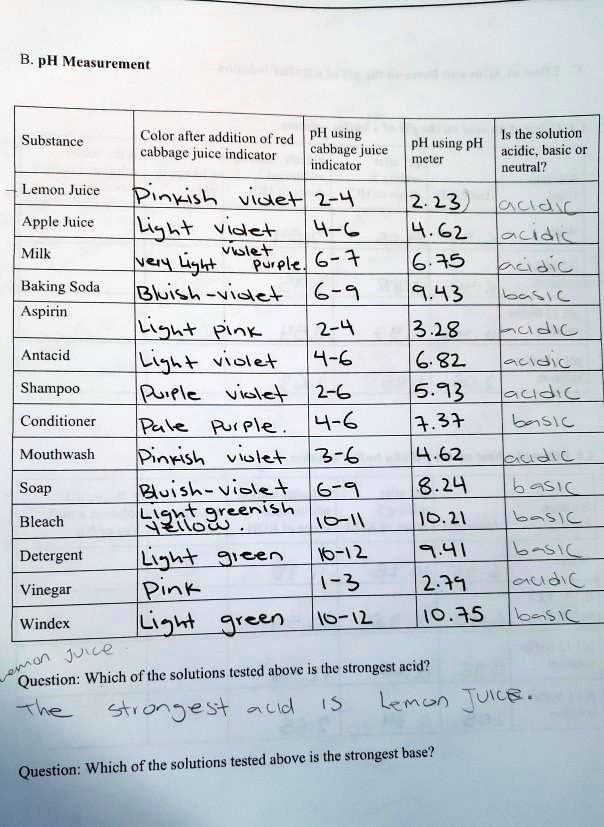 B. pH Measurement
Substance | Color after addition of red cabbage juice indicator | pH using cabbage juice indicator | pH using pH meter | Is the solution acidic, basic or neutral?
Lemon Juice | Pinkish violet | 2-4 | 2.23 | acidic
Apple Juice | Light violet | 4-6 | 4.62 | acidic
Milk | very Light violet purple. | 6-7 | 6.75 | acidic
Baking Soda | Bluish-violet | 6-9 | 9.43 | basic
Aspirin | Light pink | 2-4 | 3.28 | acidic
Antacid | Light violet | 4-6 | 6.82 | acidic
Shampoo | Purple violet | 2-6 | 5.93 | acidic
Conditioner | Pale Purple. | 4-6 | 7.37 | basic
Mouthwash | Pinkish violet | 3-6 | 4.62 | acidic
Soap | Bluish-violet | 6-9 | 8.24 | basic
Bleach | Light greenish yellow. | 10-11 | 10.21 | basic
Detergent | Light green | 10-12 | 9.41 | basic
Vinegar | Pink | 1-3 | 2.79 | acidic
Windex | Light green | 10-12 | 10.75 | basic
Lemon Juice
Question: Which of the solutions tested above is the strongest acid?
The strongest acid is Lemon Juice.
Question: Which of the solutions tested above is the strongest base?